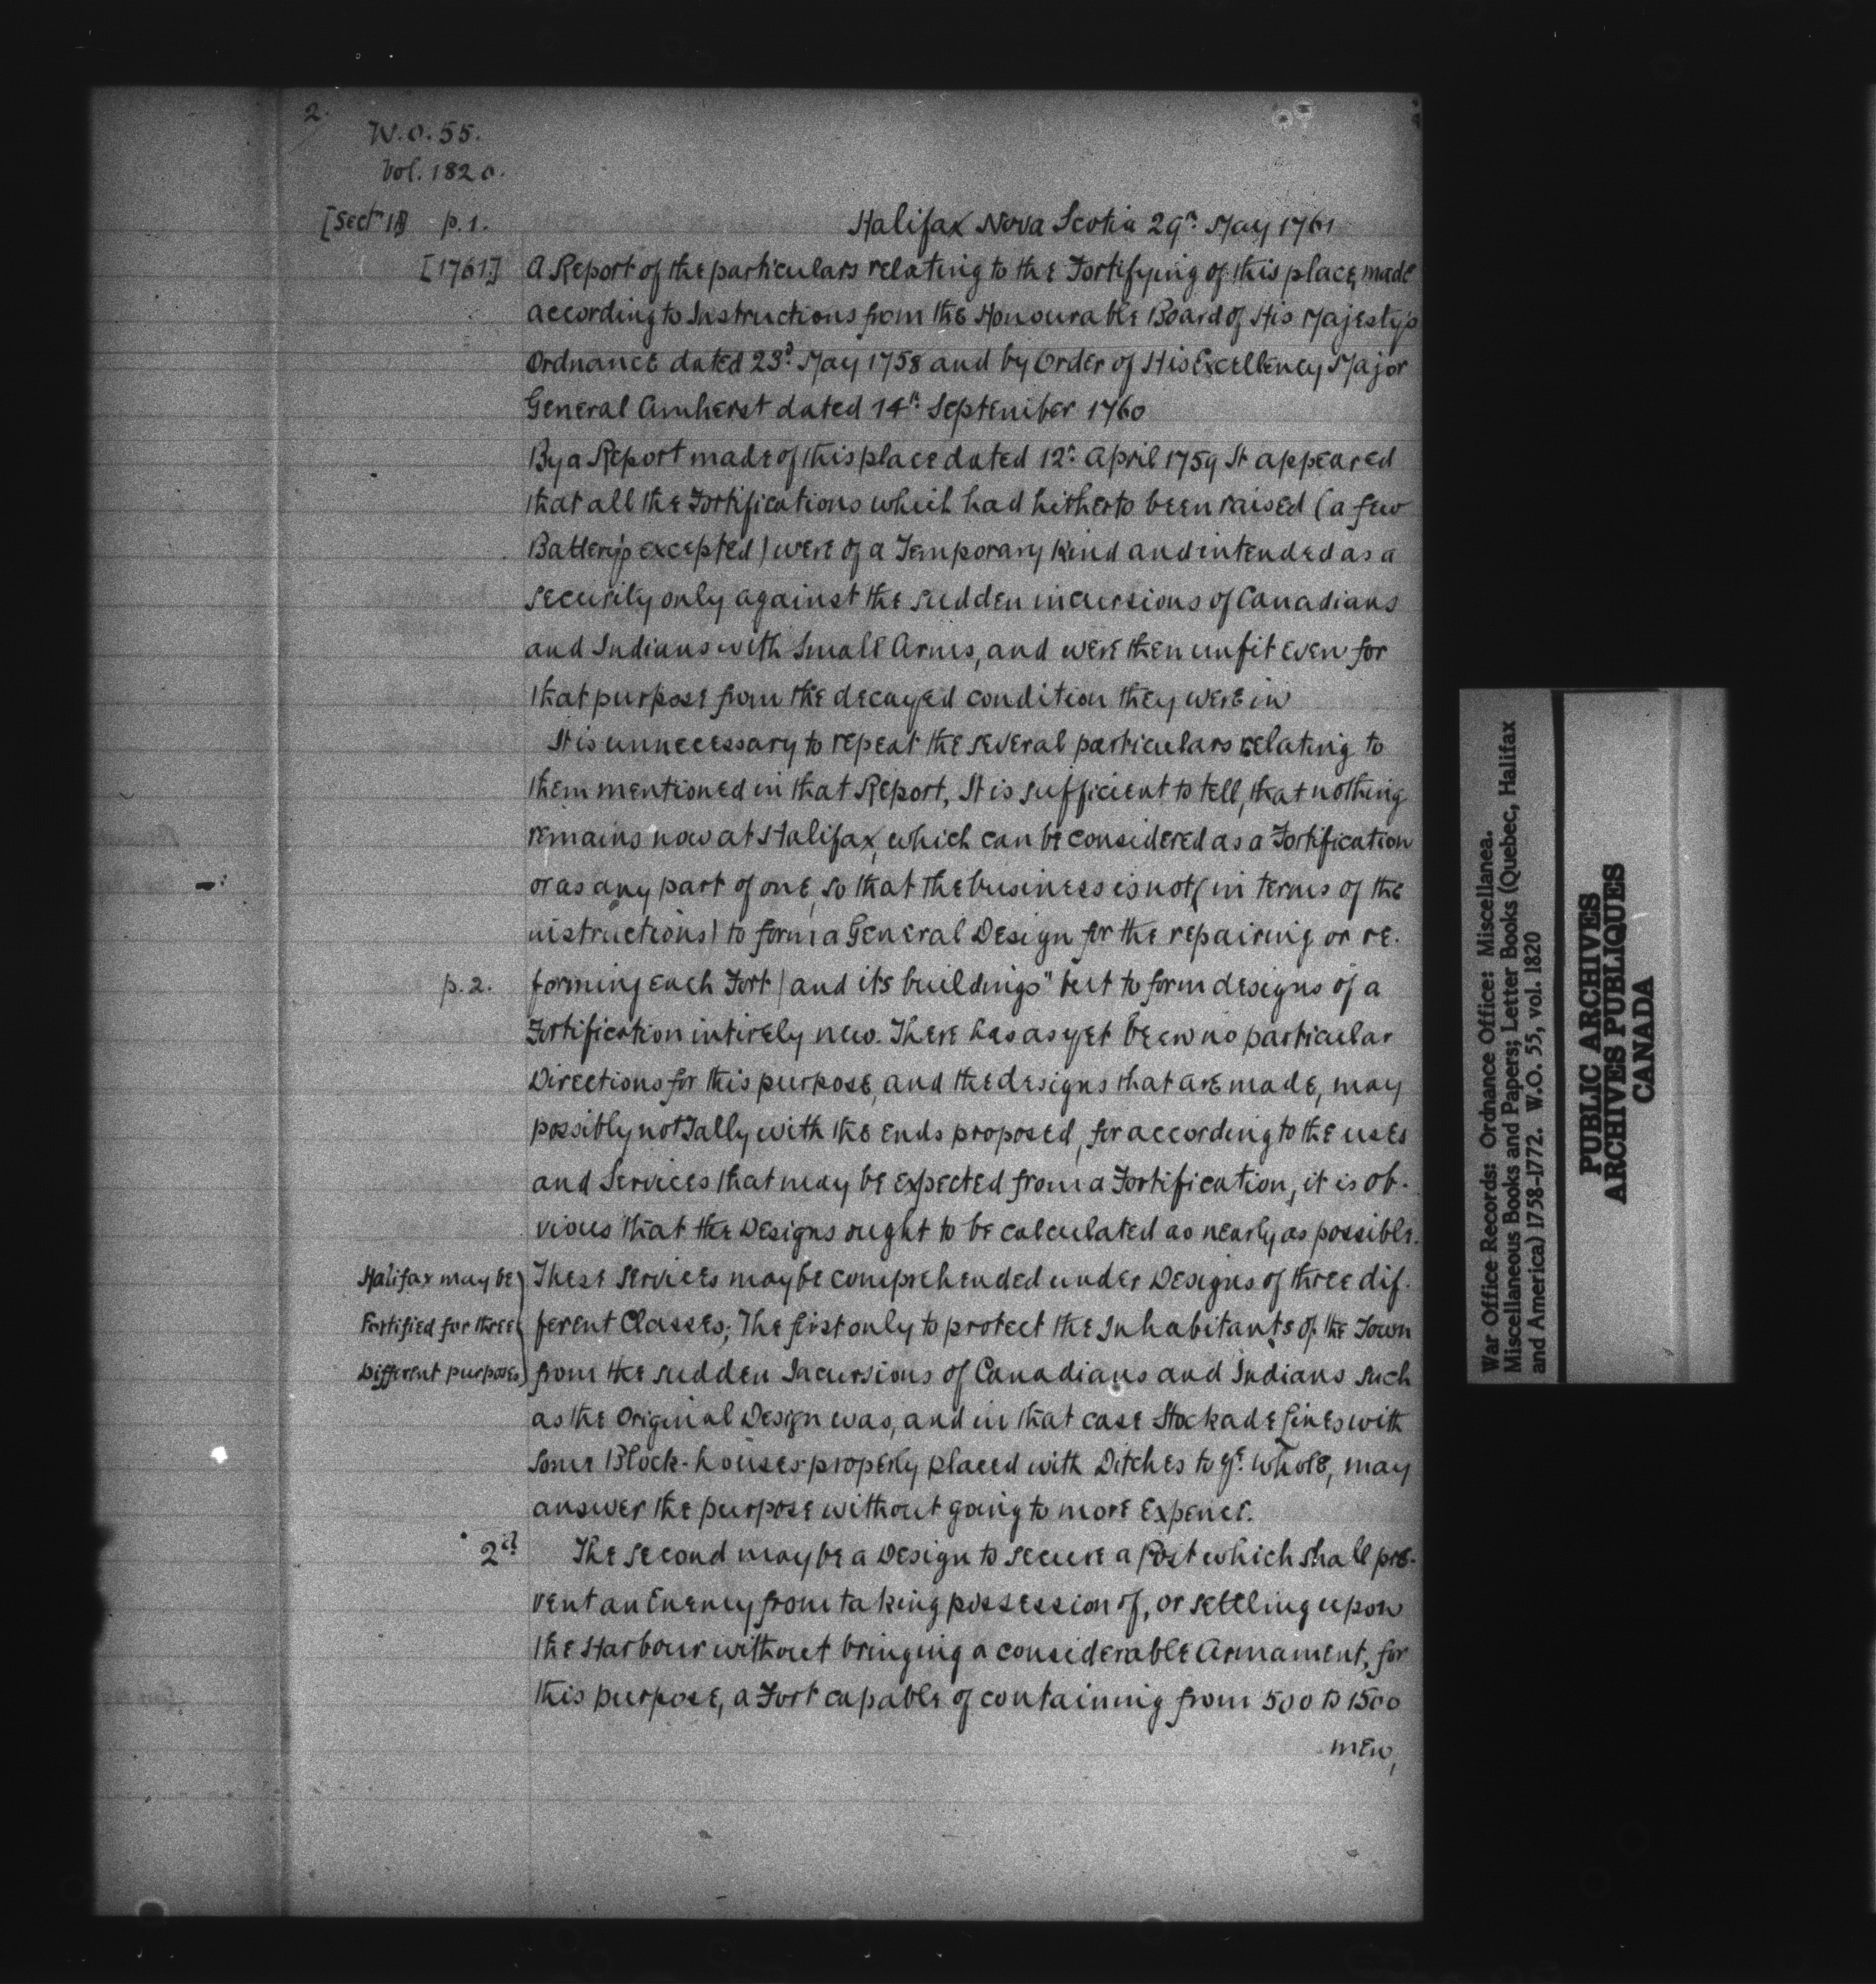 2.
W.O. 55.
Vol. 1820.
[Sectn 1] p.1.
Halifax Nova Scotia 29th May 1761
[1761] A Report of the particulars relating to the Fortifying of this place, made
according to Instructions from the Honourable Board of His Majesty's
Ordnance dated 23d May 1758 and by Order of His Excellency Major
General Amherst dated 14th September 1760
By a Report made of this place dated 12th April 1759 It appeared
that all the Fortifications which had hitherto been raised (a few
Battery's excepted) were of a Temporary Kind and intended as a
security only against the sudden incursions of Canadians
and Indians with Small Arms, and were then unfit even for
that purpose from the decayed condition they were in
It is unnecessary to repeat the several particulars relating to
them mentioned in that Report, It is sufficient to tell, that nothing
remains now at Halifax, which can be considered as a Fortification
or as any part of one, so that the business is not (in terms of the
instructions) to form a General Design for the repairing or re-
p. 2. forming each Fort) and its buildings" but to form designs of a
Fortification intirely new. There has as yet been no particular
Directions for this purpose, and the designs that are made, may
possibly not Tally with the ends proposed, for according to the uses
and Services that may be expected from a Fortification, it is ob-
vious that the Designs ought to be calculated as nearly as possible.
Halifax may be } These services may be comprehended under Designs of three dif-
Fortified for three } ferent Classes; The first only to protect the Inhabitants of the Town
Different purposes } from the sudden Incursions of Canadians and Indians such
as the Original Design was, and in that case Stockade lines with
some Block-houses properly placed with Ditches to ye whole, may
answer the purpose without going to more Expence.
2d The second may be a Design to secure a Post which shall pre-
vent an Enemy from taking possession of, or settling upon
the Harbour without bringing a considerable Armament, for
this purpose, a Fort capable of containing from 500 to 1500
men,
War Office Records: Ordnance Office: Miscellanea.
Miscellaneous Books and Papers; Letter Books (Quebec, Halifax
and America) 1758-1772. W.O. 55, vol. 1820
PUBLIC ARCHIVES
ARCHIVES PUBLIQUES
CANADA